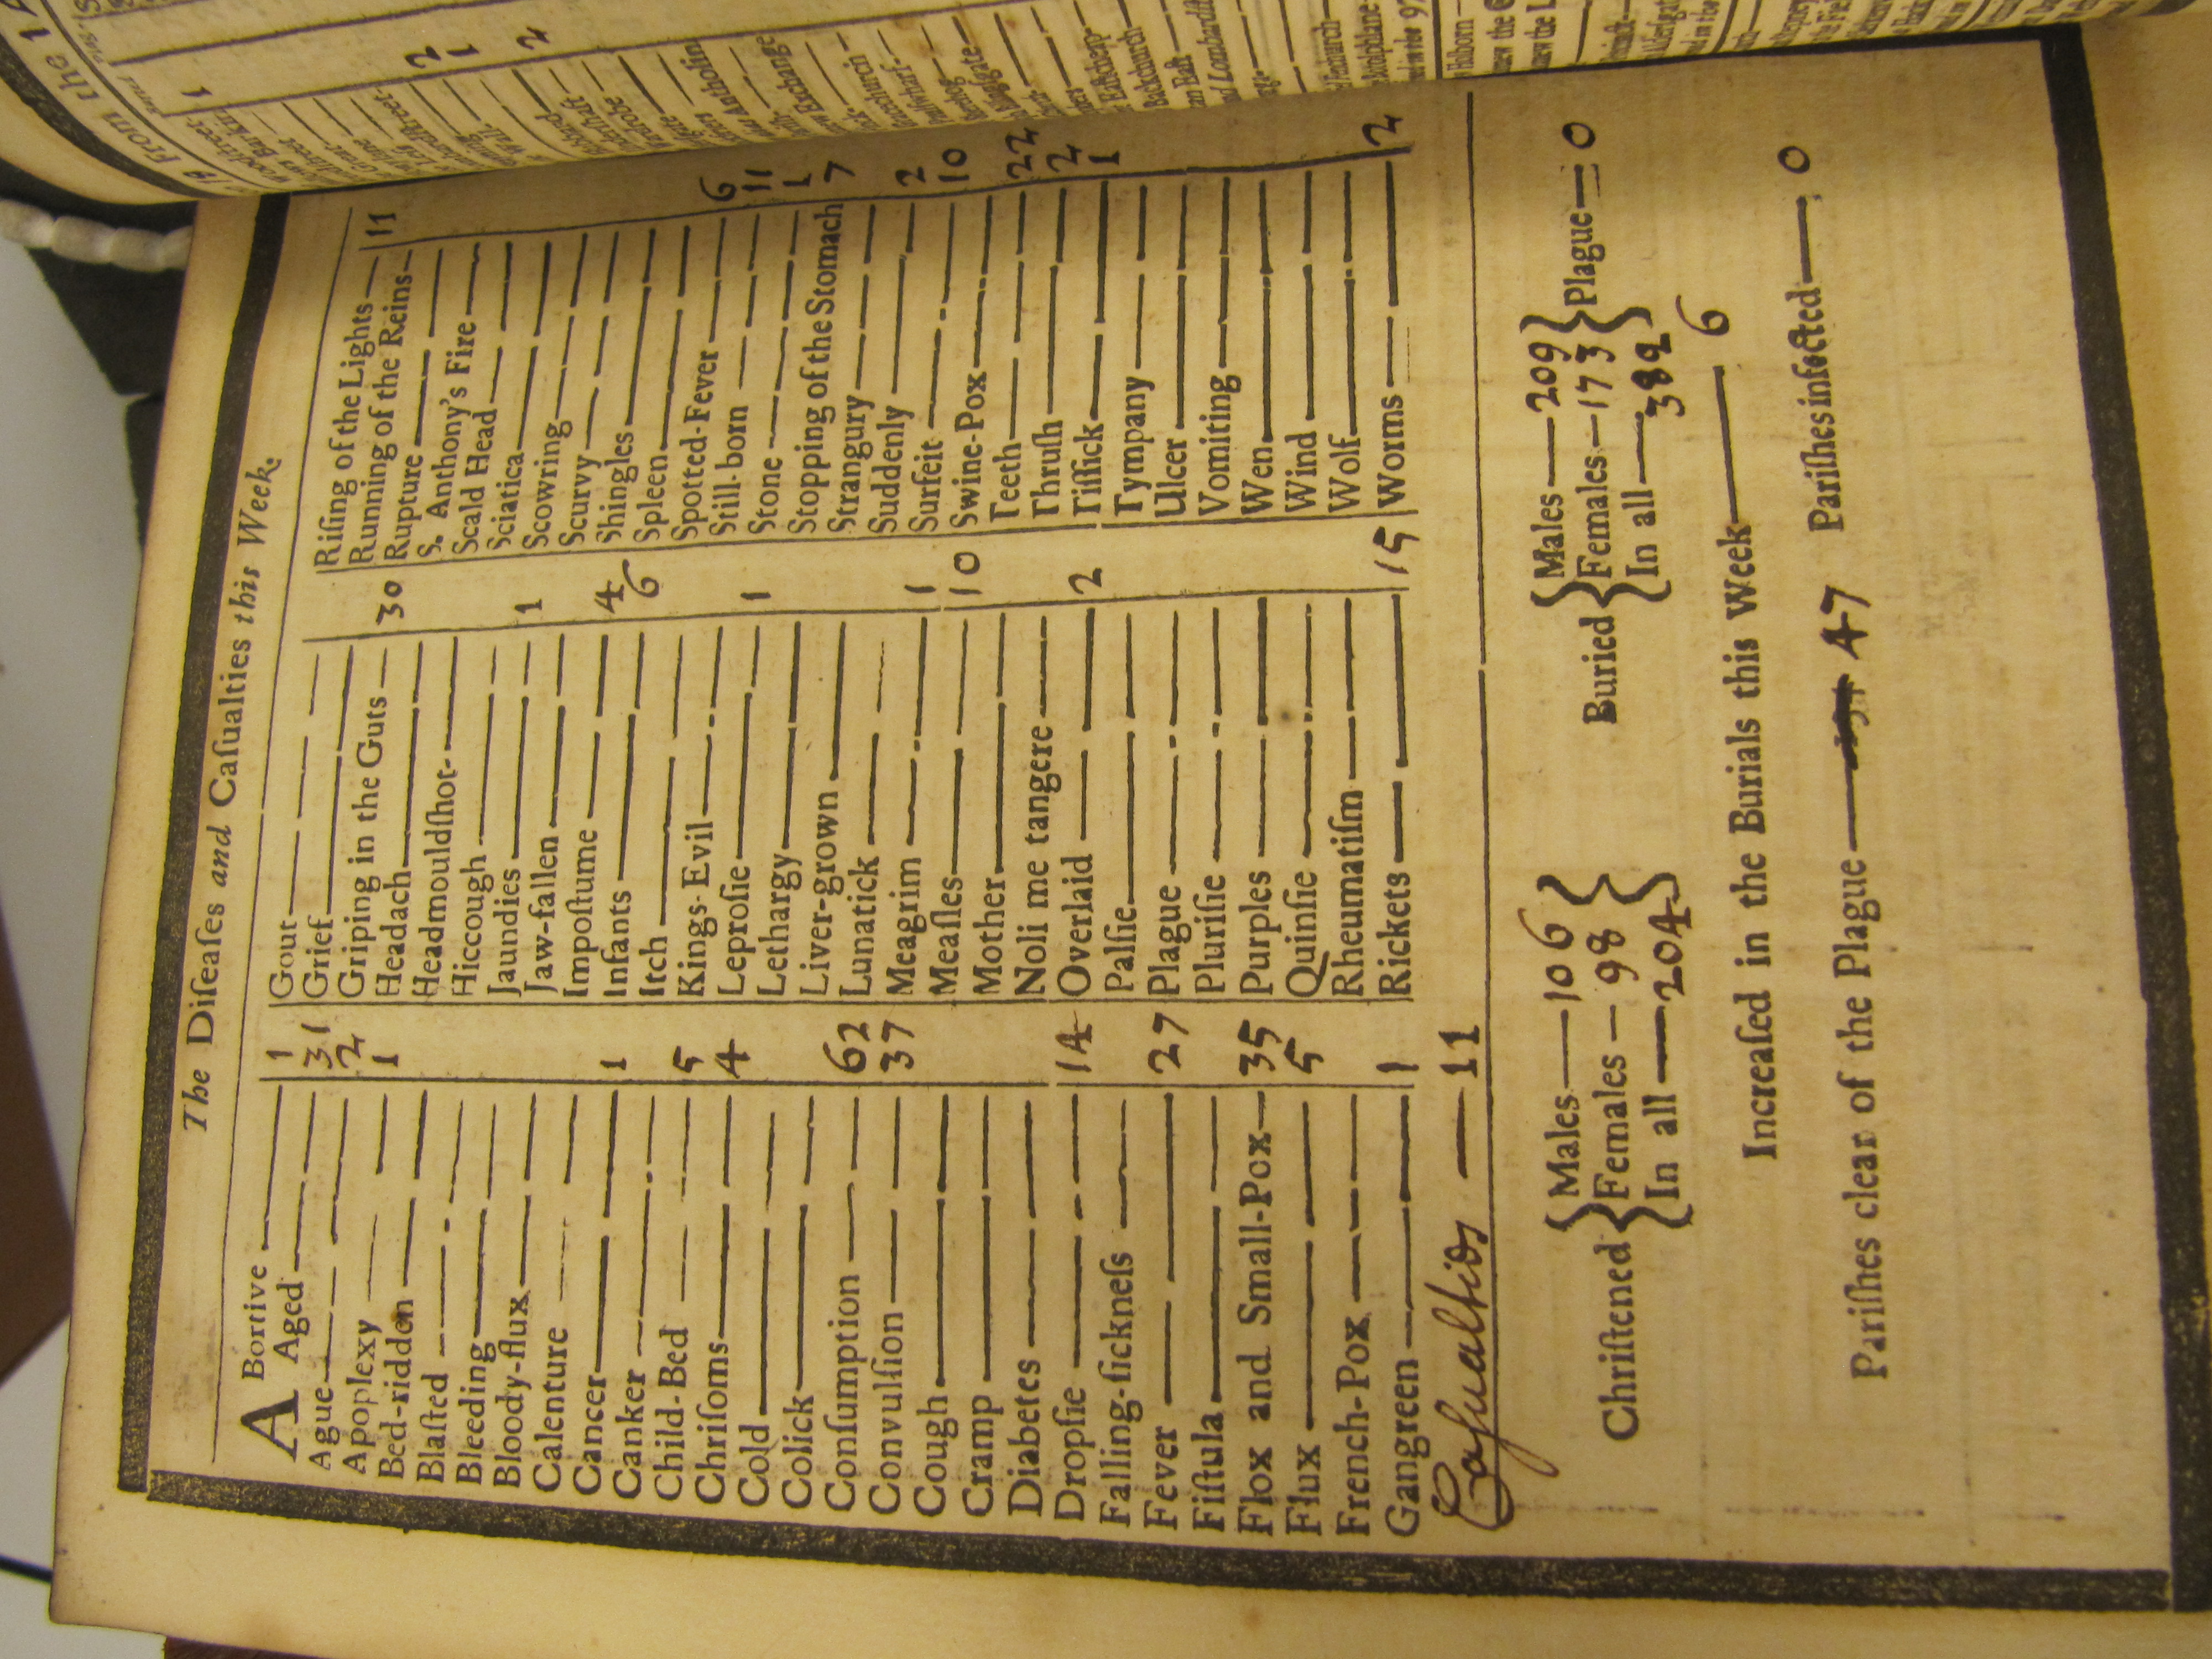 The Diſeaſes and Caſualties this Week.
ABortive 1
Aged 31
Ague 2
Apoplexy 1
Bed-ridden
Blaſted
Bleeding
Bloody-flux
Calenture
Cancer 1
Canker
Child-Bed 5
Chriſoms 4
Cold
Colick
Conſumption 62
Convulſion 37
Cough
Cramp
Diabetes
Dropſie 14
Falling-ſickneſs
Fever 27
Fiſtula
Flox and Small-Pox 35
Flux 5
French-Pox
Gangreen 1
Caſualtios 11
Gout
Grief
Griping in the Guts 30
Headach
Headmouldſhot
Hiccough
Jaundies 1
Jaw-fallen
Impoſtume 4
Infants 6
Itch
Kings-Evil
Leproſie 1
Lethargy
Liver-grown
Lunatick
Meagrim 1
Meaſles 10
Mother
Noli me tangere
Overlaid 2
Palſie
Plague
Pluriſie
Purples
Quinſie
Rheumatiſm
Rickets 15
Riſing of the Lights 11
Running of the Reins
Rupture
S. Anthony's Fire
Scald Head
Sciatica
Scowring
Scurvy
Shingles
Spleen
Spotted-Fever 6
Still-born 11
Stone 1
Stopping of the Stomach 7
Strangury
Suddenly 2
Surfeit 10
Swine-Pox
Teeth 22
Thruſh 2
Tiſſick 1
Tympany
Ulcer
Vomiting
Wen
Wind
Wolf
Worms 2
Chriſtened { Males 106 Females 98 In all 204 }
Buried { Males 209 Females 173 In all 382 } Plague 0
Increaſed in the Burials this Week 6
Pariſhes clear of the Plague 47 Pariſhes infected 0
From the